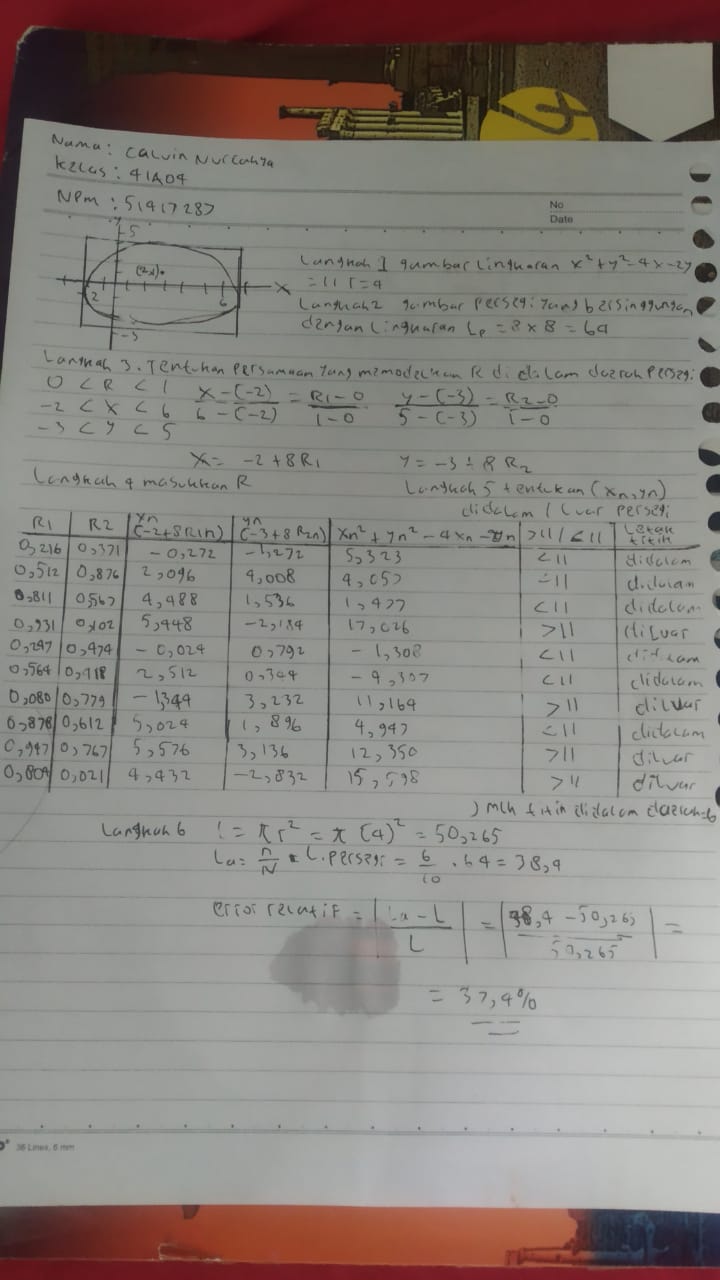 Nama : Calvin Nurcahya
Kelas : 4IA04
NPM : 51417287
No
Date
Y
5
(2,1)
-2
6
X
-3
Langkah 1 gambar lingkaran x² + y² - 4x - 2y
= 11 r = 4
Langkah 2 gambar persegi yang bersinggungan
dengan lingkaran Lp = 8 x 8 = 64
Langkah 3. Tentukan persamaan yang memodelkan R di dalam daerah persegi
0 < R < 1
-2 < x < 6
-3 < y < 5
x - (-2) / 6 - (-2) = R1 - 0 / 1 - 0
y - (-3) / 5 - (-3) = R2 - 0 / 1 - 0
x = -2 + 8R1
y = -3 + 8 R2
Langkah 4 masukkan R
Langkah 5 tentukan (xn, yn)
didalam / luar persegi
R1 R2 yn (-2+8R1n) yn (-3+8R2n) xn² + yn² - 4xn - 2yn >11 / <11 Letak titik
0,216 0,371 -0,272 -1,272 5,323 <11 didalam
0,512 0,876 2,096 4,008 4,057 <11 didalam
0,811 0,567 4,488 1,536 1,477 <11 didalam
0,931 0,102 5,448 -2,184 17,026 >11 diluar
0,247 0,474 -0,024 0,792 -1,308 <11 didalam
0,564 0,418 2,512 0,344 -4,307 <11 didalam
0,080 0,779 -1,344 3,232 11,164 >11 diluar
0,878 0,612 5,024 1,896 4,947 <11 didalam
0,947 0,767 5,576 3,136 12,350 >11 diluar
0,804 0,021 4,432 -2,832 15,598 >11 diluar
Jmlh titik didalam daerah = 6
Langkah 6 L = πr² = π (4)² = 50,265
La = n/N . L.persegi = 6/10 . 64 = 38,4
error relatif = | La - L / L | = | 38,4 - 50,265 / 50,265 | =
= 37,4%
36 Lines, 6 mm